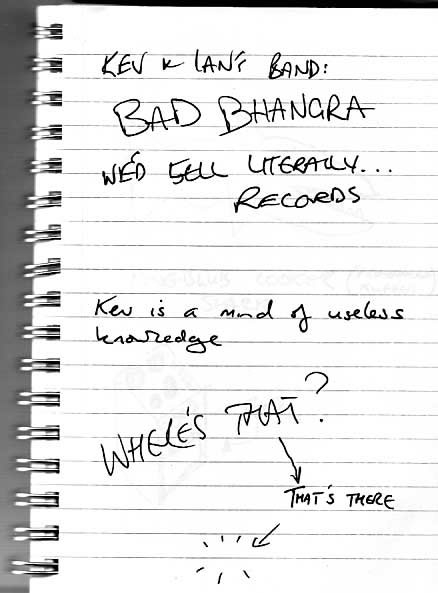 KEV & IAN'S BAND:
BAD BHANGRA
WE'D SELL LITERALLY...
RECORDS
Kev is a mind of useless
knowledge
WHERE'S THAT?
THAT'S THERE